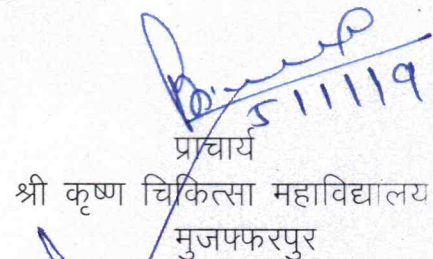 5/11/19
प्राचार्य
श्री कृष्ण चिकित्सा महाविद्यालय
मुजफ्फरपुर